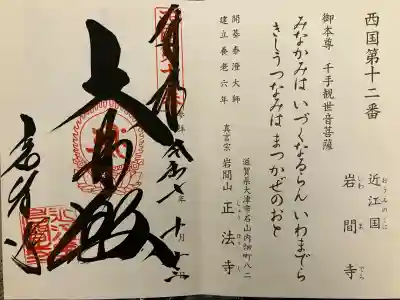 西国第十二番
近江国
おうみのくに
岩間寺
いわまでら
御本尊 千手観世音菩薩
みなかみは いづくなるらん いわまでら
きしうつなみは まつかぜのおと
開基泰澄大師
建立養老六年
滋賀県大津市石山内畑町八二
真言宗 岩間山 正法寺
しょうほうじ
奉拝
大悲殿